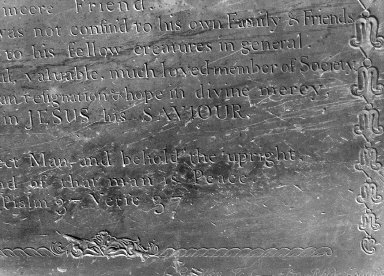 incere Friend.
was not confin'd to his own Family & Friends
to his fellow creatures in general.
valuable, much loved member of Society
resignation & hope in divine mercy,
in JESUS, his SAVIOUR.
ect Man, and behold the upright,
nd of that man is Peace
Psalm 37 Verse 37